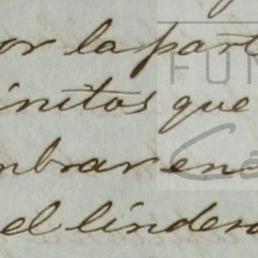 or la part
initos que
mbrar en
el lindero
FUN
Cá